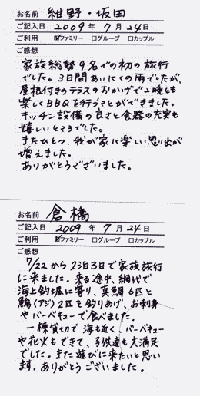 お名前 紺野・坂田
ご記入日 2009年 7月24日
ご利用 ☑ファミリー □グループ □カップル
ご感想
家族総勢9名での初の旅行
でした。3日間あいにくの雨でしたが、
屋根付きのテラスのおかげで2晩も
楽しくBBQをすることができました。
キッチン設備の良さと食器の充実も
嬉しいところでした。
またひとつ、我が家に楽しい思い出が
増えました。
ありがとうございました。
お名前 倉橋
ご記入日 2009年 7月24日
ご利用 ☑ファミリー □グループ □カップル
ご感想
7/22から2泊3日で家族旅行
に来ました。来る途中、網代で
海上釣り堀に寄り、真鯛6匹と
鯵(アジ)2匹を釣りあげ、お刺身
やバーベキューで食べました。
一棟貸切で海も近く、バーベキュー
や花火もできて、子供達も大満足
でした。また遊びに来たいと思い
ます。ありがとうございました。